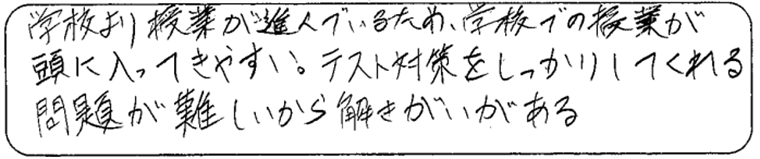 学校より授業が進んでいるため、学校での授業が
頭に入ってきやすい。テスト対策をしっかりしてくれる
問題が難しいから解きがいがある